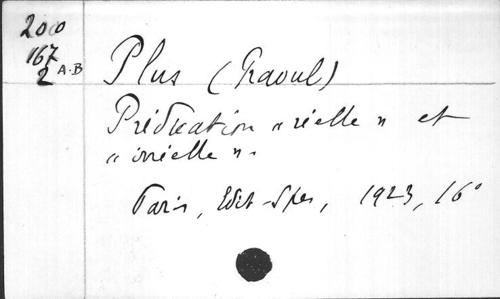 200
167
2 A-B
Plus (Raoul)
Prédication « réelle » et
« irréelle ».
Paris, Edit-Spes, 1923, 16°